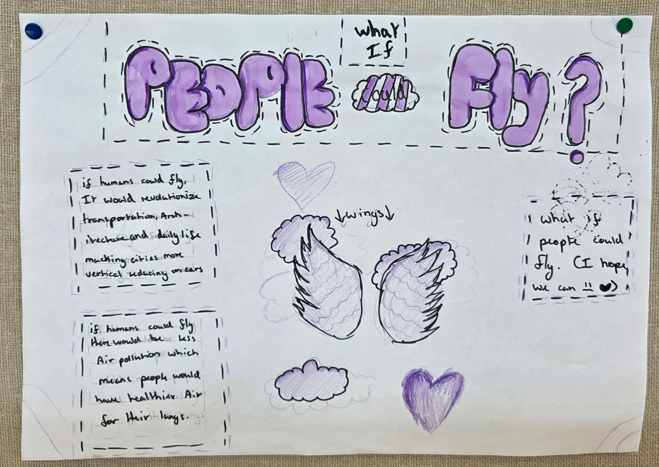 what
If
PEOPLE could Fly?
if humans could fly,
It would revolutionize
transportation, Arch-
itecture and daily life
macking cities more
vertical reducing on cars
↓wings↓
what if
people could
fly. (I hope
we can !! ♥)
if humans could fly
there would be less
Air pollution which
means people would
have healthier Air
for their lungs.